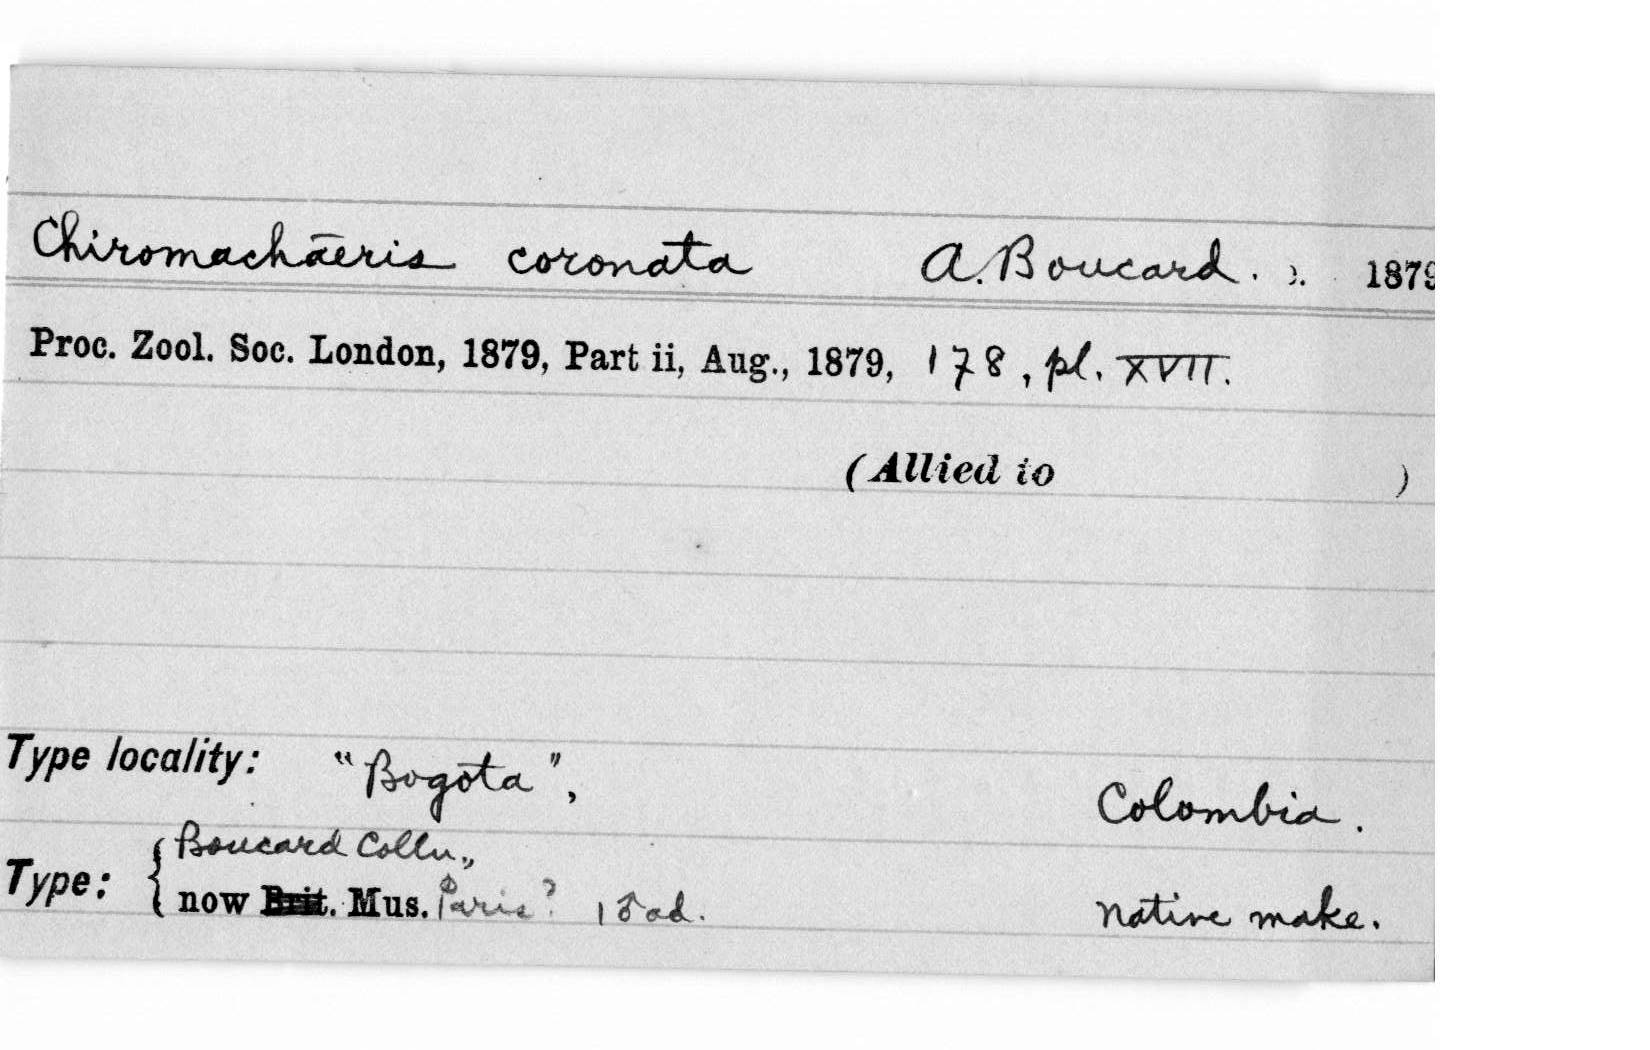 Chiromachaeris coronata A. Boucard. 1879
Proc. Zool. Soc. London, 1879, Part ii, Aug., 1879, 178, pl. XVII.
(Allied to )
Type locality: "Bogota", Colombia.
Type: { Boucard Colln.,
now Brit. Mus. Paris? 1 ♂ ad. native make.